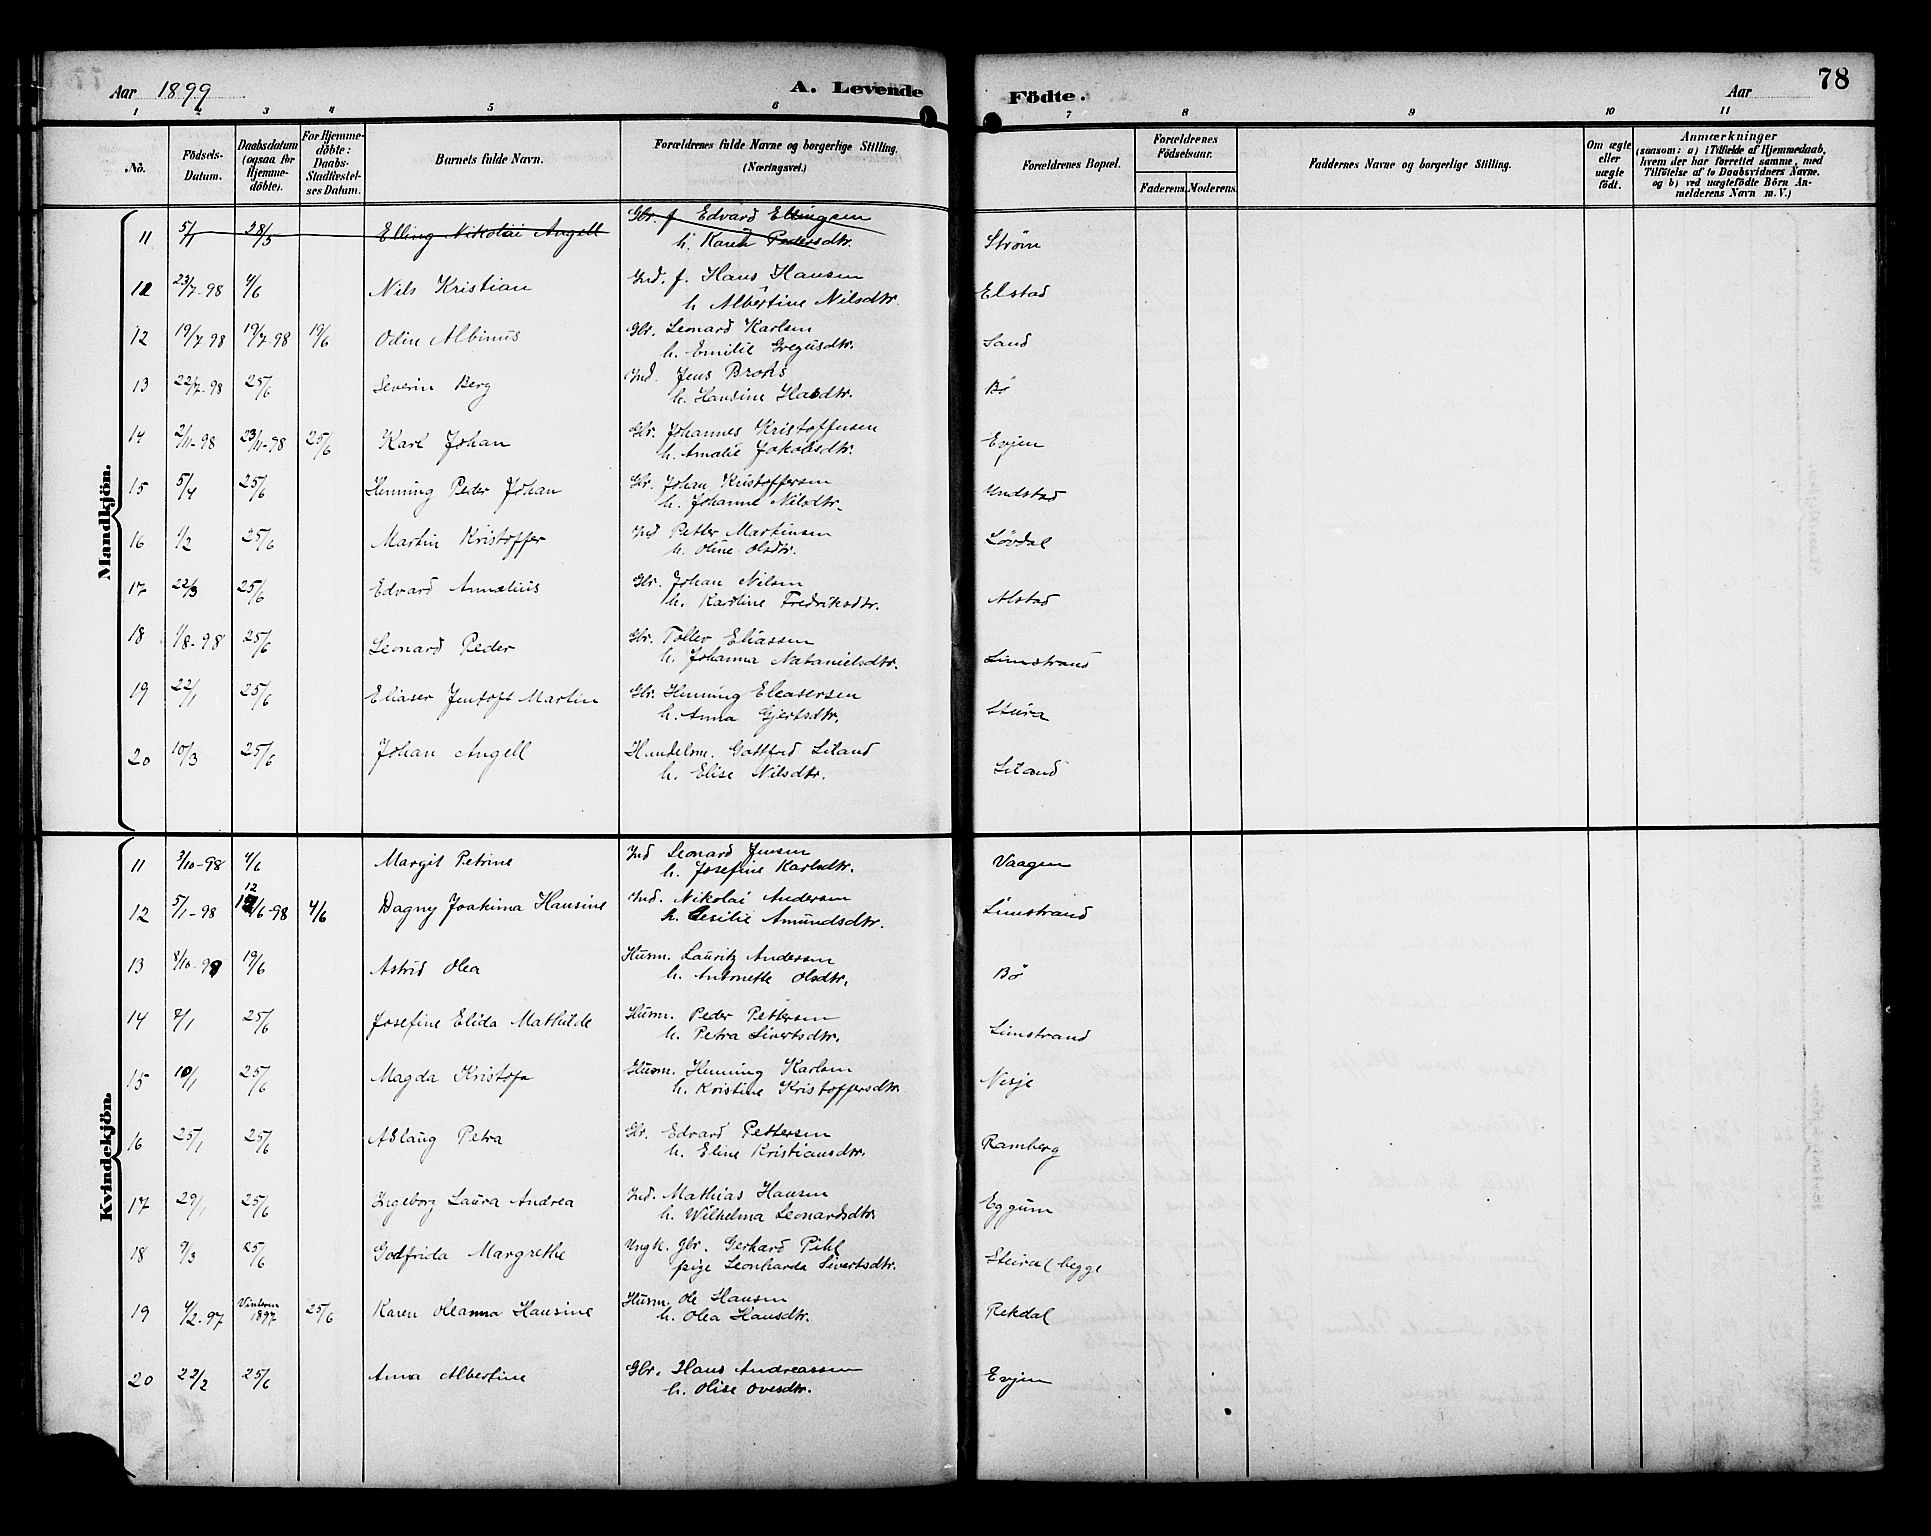 Aar 1899 A. Levende
Födte. Aar 78
1 2 3 4 5 6 7 8 9 10 11
No.
Födsels-
Datum.
Daabsdatum
(ogsaa for
Hjemme-
döbte).
For Hjemme-
döbte:
Daabs-
Stadfæstel-
ses Datum.
Barnets fulde Navn.
Forældrenes fulde Navne og borgerlige Stilling.
(Næringsvei.)
Forældrenes Bopæl.
Forældrenes
Födselsaar.
Faderens. Moderens.
Faddernes Navne og borgerlige Stilling.
Om ægte
eller
uægte
födt.
Anmærkninger
(saasom: a) i Tilfælde af Hjemmedaab,
hvem der har forrettet samme, med
Tilföielse af to Daabsvidners Navne.
og b) ved uægtefödte Börn An-
melderens Navn m. V.)
Mandkjön.
11 5/1 28/5 Elling Nikolai Angell Gbr. f Edvard Ellingsen Strøm
h. Karen Pedersdtr.
11 23/7-98 4/6 Nils Kristian Ind. f. Hans Hansen Elstad
h Albertine Nilsdtr.
12 19/7-98 19/7-98 19/6 Odin Albinus Gbr. Leonard Karlsen Sand
h. Emilie Gregusdtr.
13 22/7-98 25/6 Severin Berg Ind. Jens Broks Bø
h. Hansine Hasdtr.
14 2/11-98 23/11-98 25/6 Karl Johan Gbr. Johannes Kristoffersen Evjen
h. Amalie Jakobsdtr.
15 5/4 25/6 Henning Peder Johan Gbr. Johan Kristoffersen Undstad
h. Johanne Nilsdtr.
16 1/2 25/6 Martin Kristoffer Ind Petter Martinsen Løvdal
h. Oline Olsdtr.
17 22/3 25/6 Edvard Annælius Gbr. Johan Nilsen Alstad
h. Karoline Fredriksdtr.
18 1/8-98 25/6 Leonard Peder Gbr. Toller Eliassen Limstrand
h. Johanna Natanielsdtr.
19 22/1 25/6 Eliaser Jentoft Martin Gbr. Henning Eleasersen Steira
h. Anna Gjertsdtr.
20 10/3 25/6 Johan Angell Handelsm. Gottfred Liland Liland
h. Elise Nilsdtr.
Kvindekjön.
11 3/10-98 4/6 Margit Petrine Ind Leonard Jensen Vaagen
h. Josefine Karlsdtr.
12 5/1-98 12/6-98 4/6 Dagny Joakima Hansine Ind. Nikolai Andersen Limstrand
h. Cesilie Amundsdtr.
13 8/10-99 19/6 Astrid Olea Husm. Lauritz Andersen Bø
h. Antonette Olsdtr.
14 2/1 25/6 Josefine Elida Mathilde Husm. Peder Pettersen Limstrand
h. Petra Sivertsdtr.
15 10/1 25/6 Magda Kristofa Husm. Henning Karlsen Nesje
h. Kristine Kristoffersdtr.
16 25/1 25/6 Aslaug Petra Gbr. Edvard Pettersen Ramberg
h. Eline Kristiansdtr.
17 29/1 25/6 Ingeborg Laura Andrea Ind. Mathias Hansen Eggum
h. Wilhelma Leonardsdtr.
18 9/3 25/6 Godfrida Margrethe Ungk. Gbr. Gerhard Pihl Steira (begge
pige Leonharda Sivertsdtr.
19 4/2-97 Vinteren 1897 25/6 Karen Oleanna Hansine Husm. Ole Hansen Rekdal
h. Olea Hansdtr.
20 22/2 25/6 Anna Albertine Gbr. Hans Andreassen Evjen
h. Olise Ovesdtr.